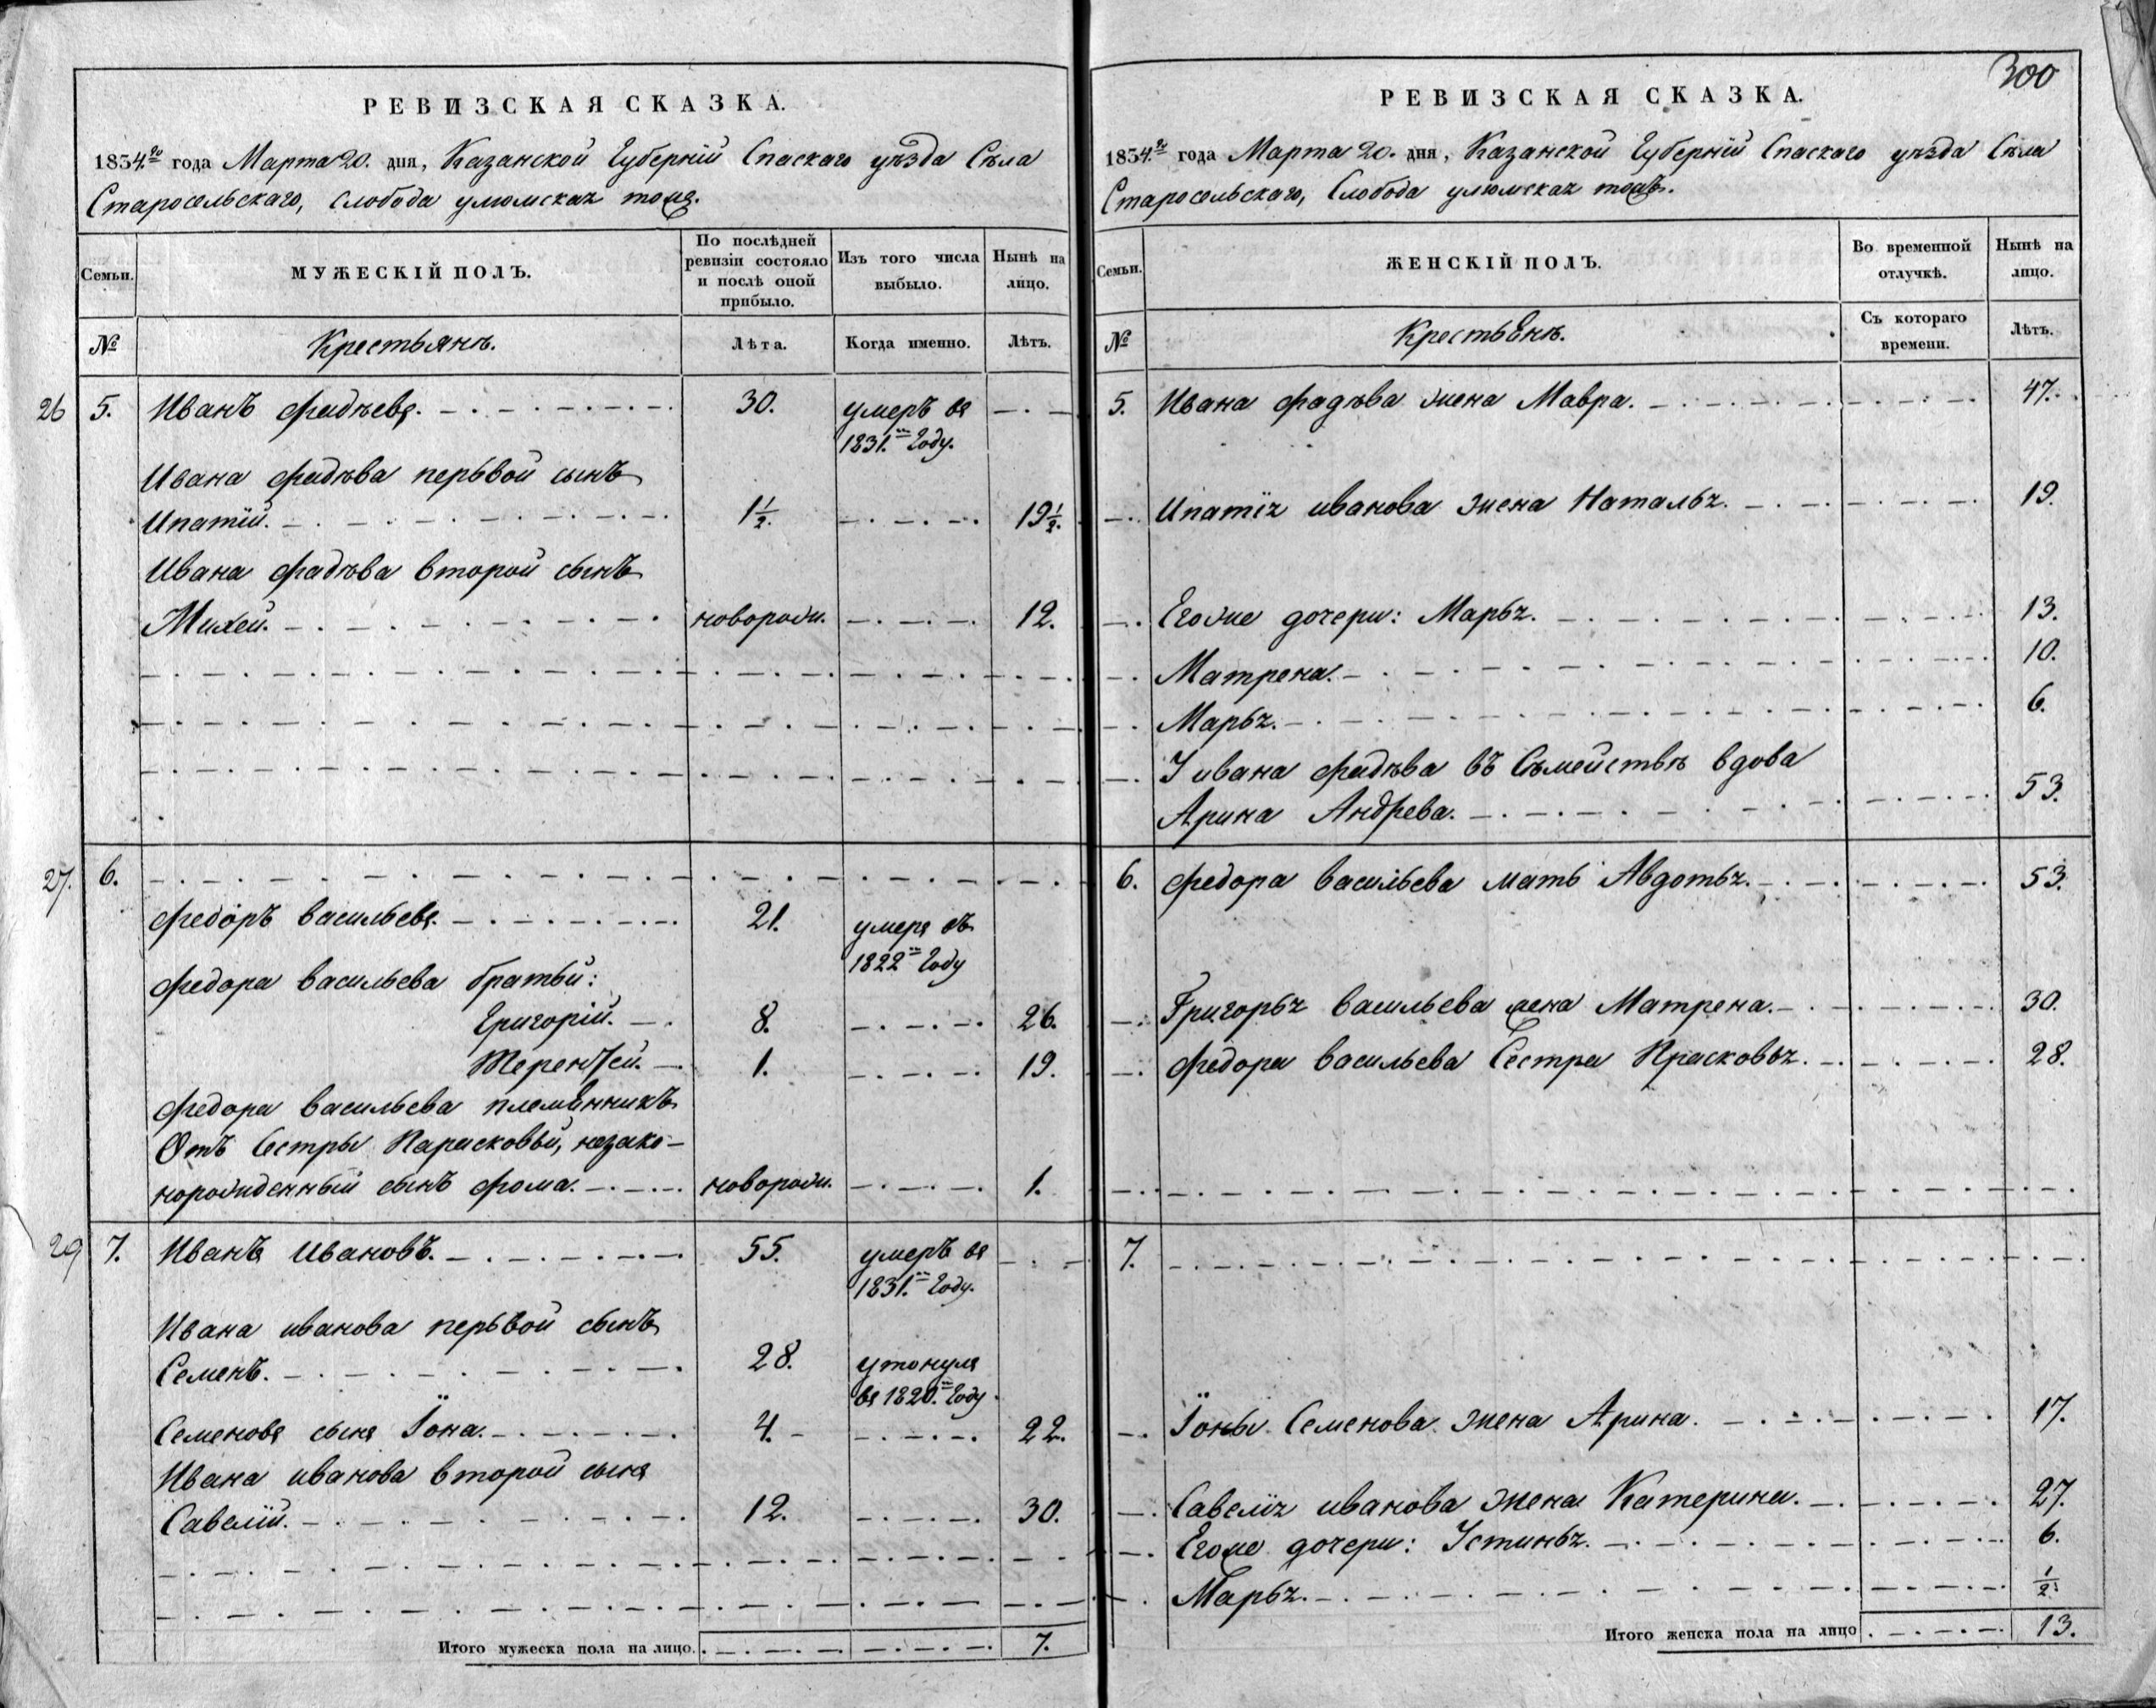 РЕВИЗСКАЯ СКАЗКА.
1834.го года Марта 20. дня, Казанской Губерніи Спаскаго уѣзда Села
Старосельскаго, слобода
Семьи.
МУЖЕСКІЙ ПОЛЪ.
По послѣдней ревизіи состояло и послѣ оной прибыло.
Изъ того числа выбыло.
Нынѣ на лицо.
№
Крестьянъ.
Лѣта.
Когда именно.
Лѣтъ.
26 5. Иванъ Фадѣевъ. 30. умеръ въ
1831.м Году.
Ивана Фадѣва перьвой сынъ
Ипатій. 1 1/2. 19 1/2.
Ивана Фадѣва второй сынъ
Михей.новорож. 12.
27. 6.
Федоръ Васильевъ. 21. умеръ въ
1822м Году
Федора Васильева братьи:
Григорій. 8. 26.
Терентей. 1. 19.
Федора Васильева племянникъ
Отъ Сестры Парасковьи, незако-
норожденный сынъ Фома. новорож. 1.
29 7. Иванъ Ивановъ. 55. умеръ въ
1831.м Году.
Ивана Иванова перьвой сынъ
Семенъ. 28. утонулъ
въ 1820.м Году.
Семеновъ сынъ Іона. 4. 22.
Ивана Иванова второй сынъ
Савелій. 12. 30.
Итого мужеска пола на лицо. 7.
300
РЕВИЗСКАЯ СКАЗКА.
1834.го года Марта 20. дня, Казанской Губерніи Спаскаго уѣзда Села
Старосельскаго, Слобода
Семьи.
ЖЕНСКІЙ ПОЛЪ.
Во временной отлучкѣ.
Нынѣ на лицо.
№
Крестьянъ.
Съ котораго времени.
Лѣтъ.
5. Ивана Фадѣва жена Мавра. 47.
Ипатія Иванова жена Наталья. 19.
Егоже дочери: Марья. 13.
Матрена. 10.
Марья. 6.
У Ивана Фадѣва въ Сѣмействѣ вдова
Арина Андрева. 53.
6. Федора Васильева мать Авдотья. 53.
Григорья Васильева жена Матрена. 30.
Федора Васильева Сестра Прасковья. 28.
7.
Іоны Семенова жена Арина. 17.
Савелія Иванова жена Катерина. 27.
Егоже дочери: Устинья. 6.
Марья. 1/2.
Итого женска пола на лицо 13.